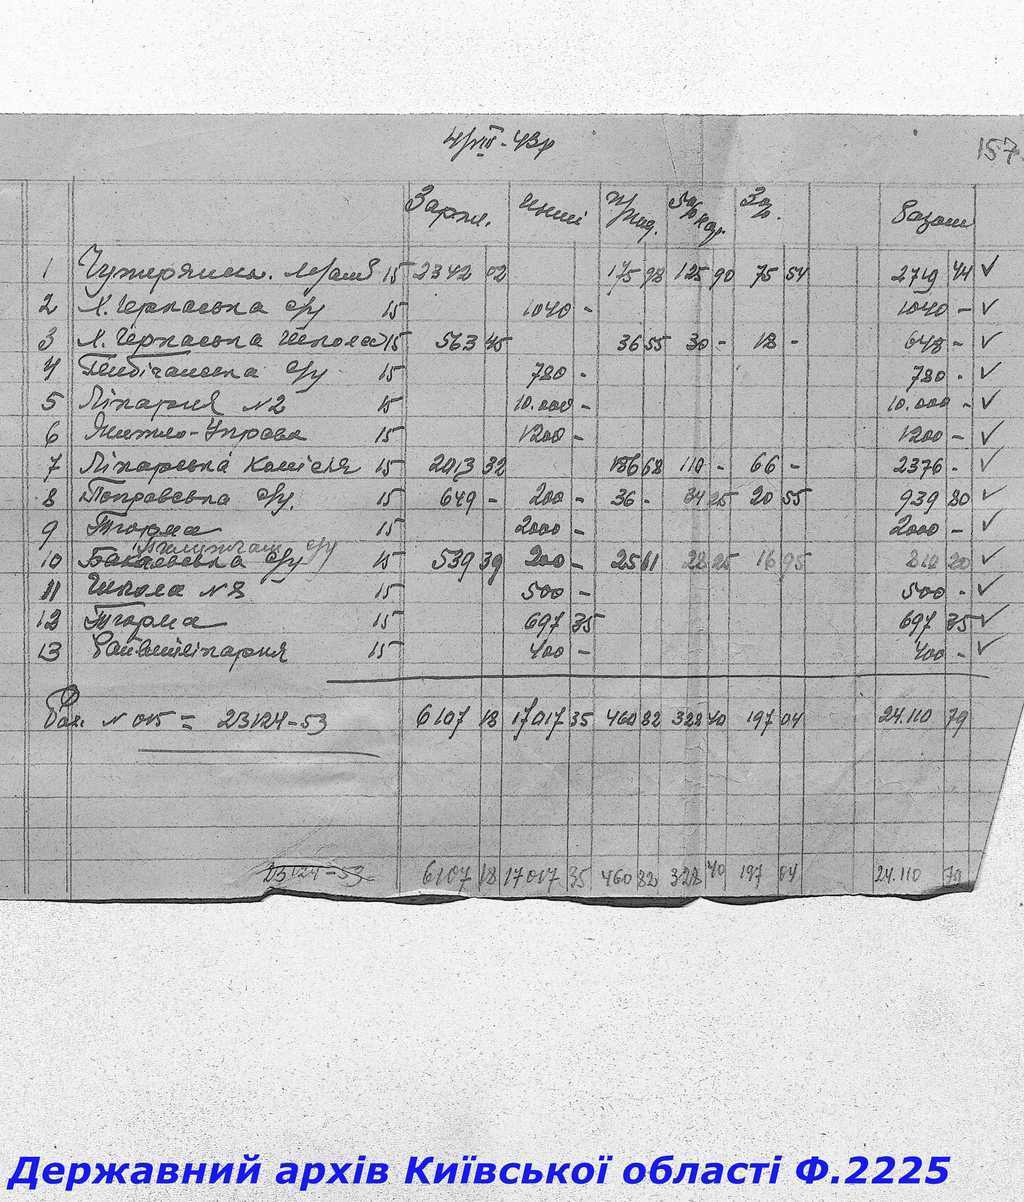 4/VIII-43р
157
Зарпл. Инші п/под. Разом
1 15 2342 02 175 98 125 90 75 54 2719 44 ✓
2 Х. Черкаська с/у 15 1040 - 1040 - ✓
3 Х. Черкаська школа 15 563 45 36 55 30 - 18 - 648 - ✓
4 с/у 15 780 - 780 - ✓
5 Лікарня №2 15 10.000 - 10.000 - ✓
6 Житло-Управа 15 1200 - 1200 - ✓
7 Лікарська комісія 15 2013 32 186 68 110 - 66 - 2376 - ✓
8 с/у. 15 649 - 200 - 36 - 34 25 20 55 939 80 ✓
9 Тюрма 15 2000 - 2000 - ✓
с/у
10 с/у 15 539 39 200 - 25 11 28 25 16 95 20 ✓
11 Школа №8 15 500 - 500 - ✓
12 Тюрма 15 697 35 697 35 ✓
13 15 400 - 400 - ✓
Рах. № 015 = 23124-53 6107 18 17017 35 460 82 328 40 197 04 24.110 79
23124-53 6107 18 17017 35 460 82 328 40 197 04 24.110 79
Державний архів Київської області Ф.2225